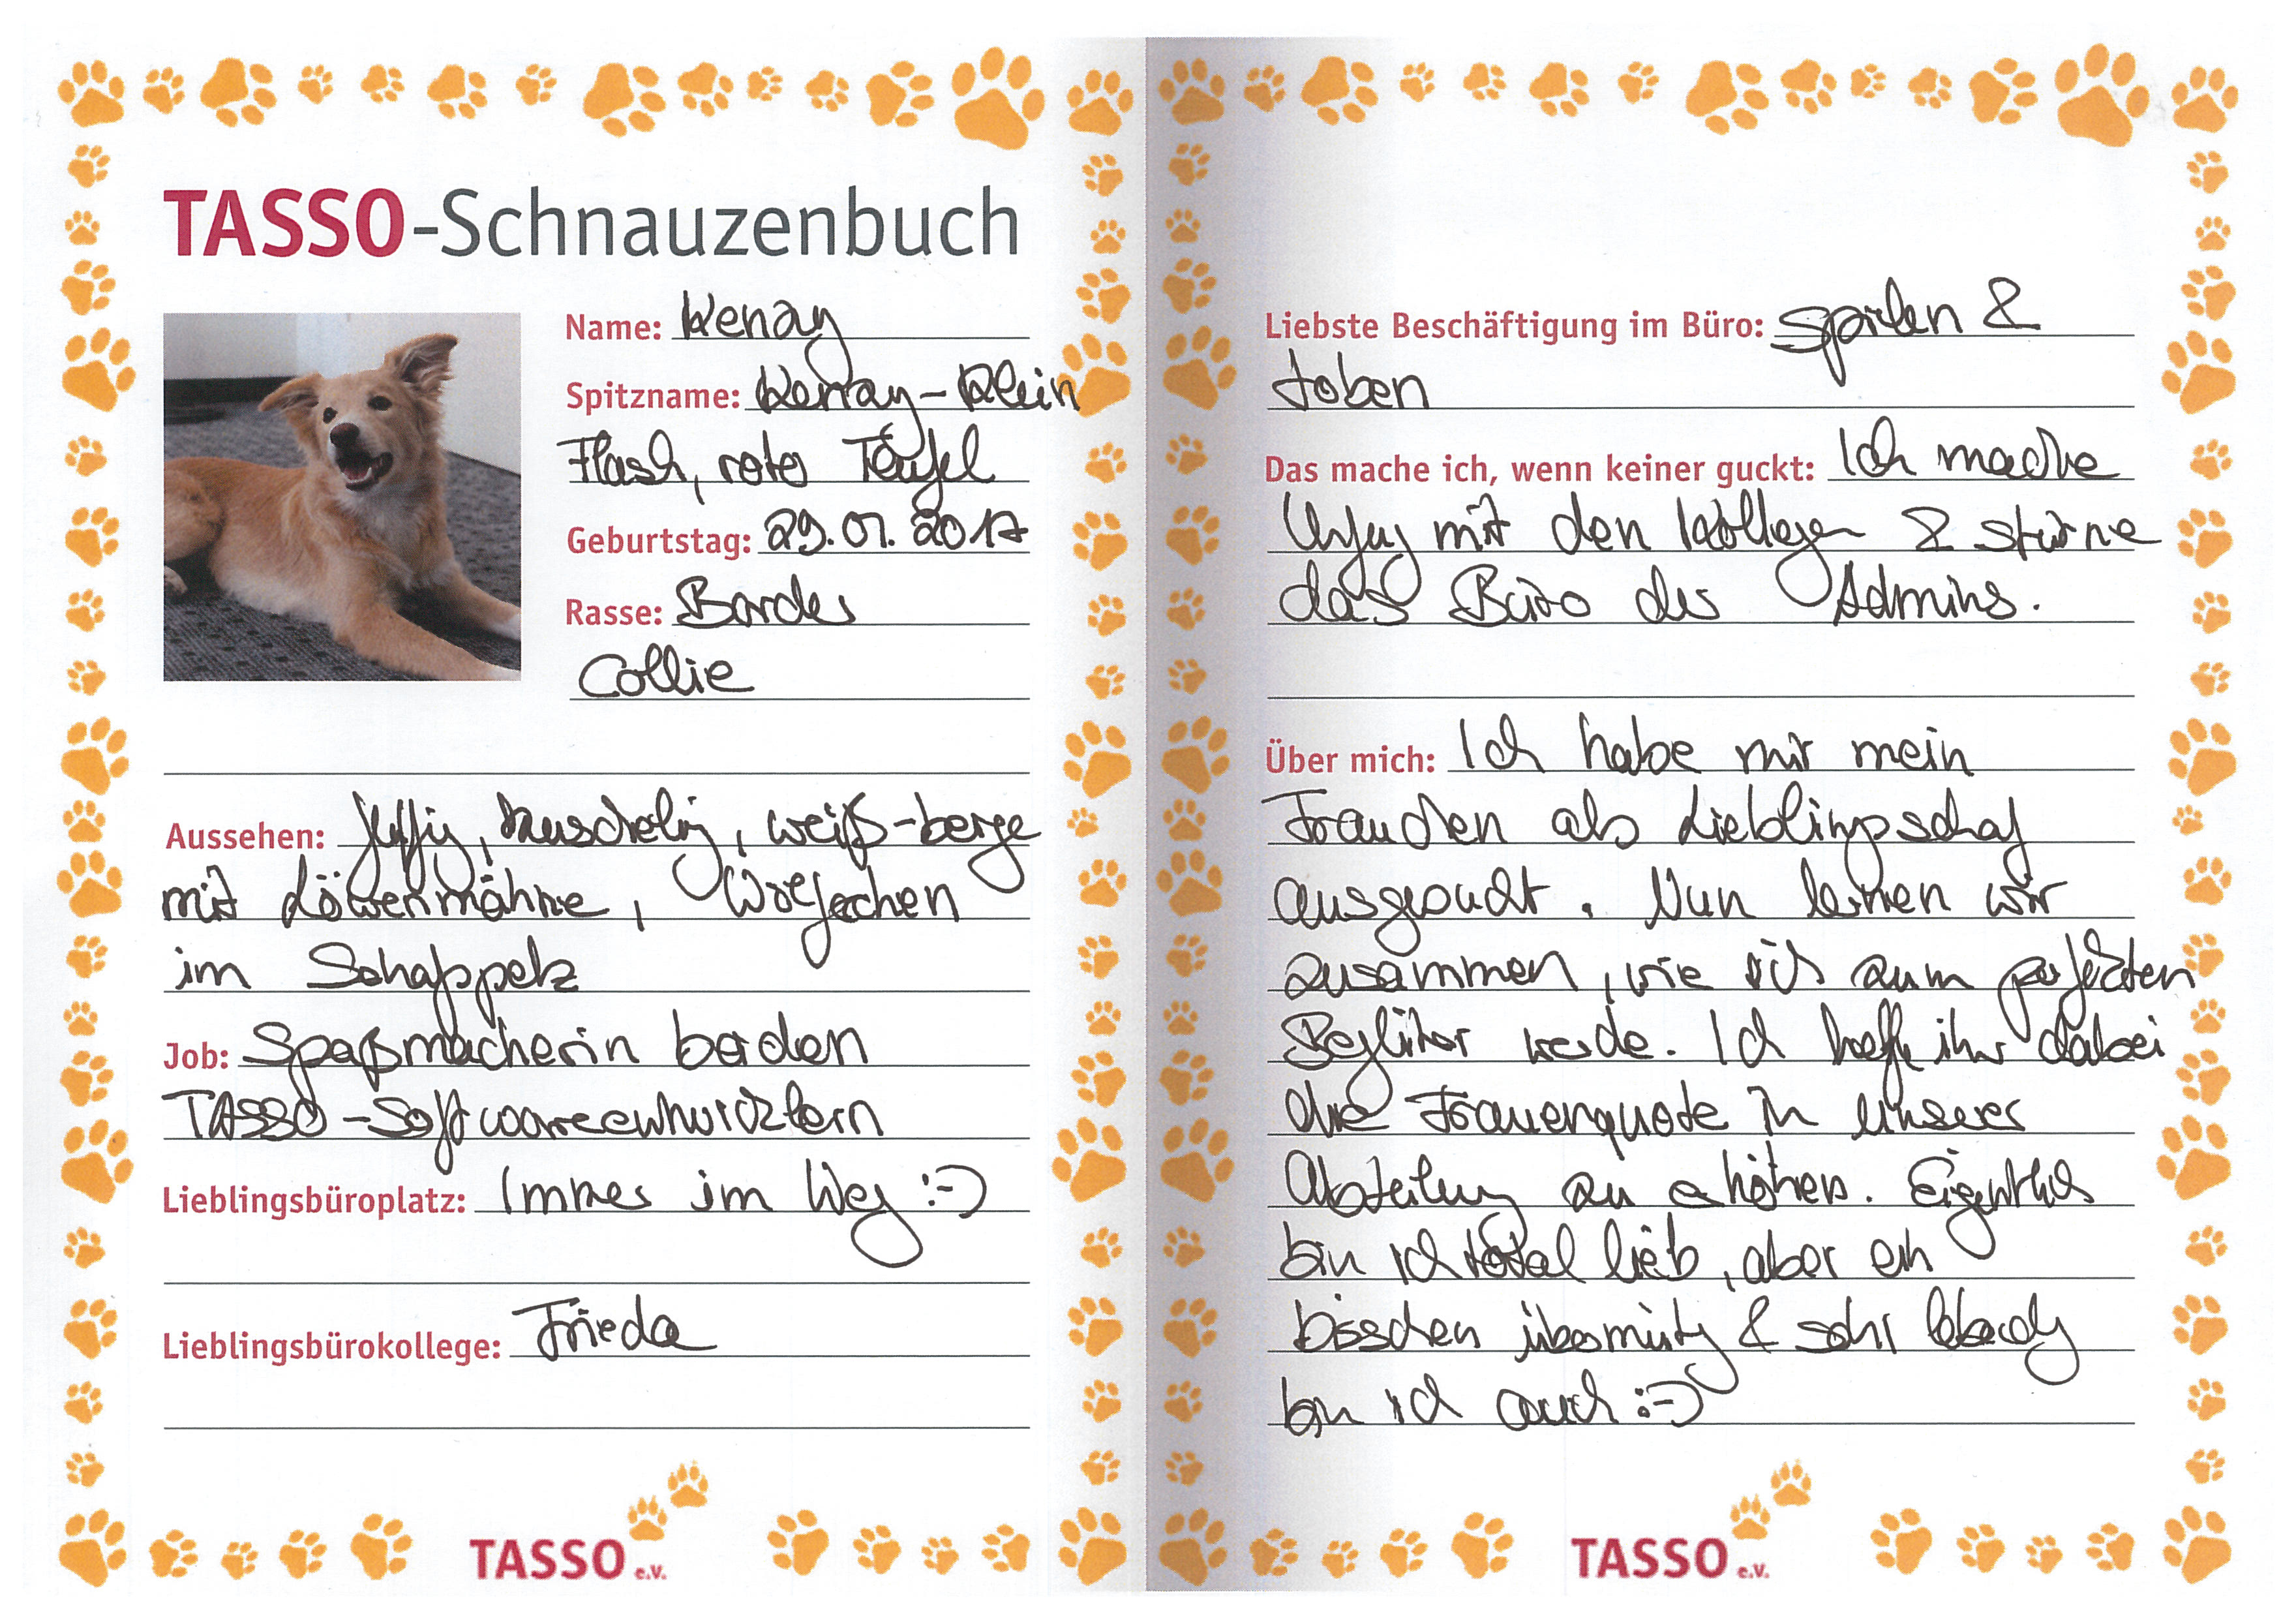 TASSO-Schnauzenbuch
Name: Kenay
Spitzname: Kenay-Klein
Flash, roter Teufel
Geburtstag: 29.01.2017
Rasse: Border
Collie
Aussehen: fluffig, kuschelig, weiß-beige
mit Löwenmähne, Wölfechen
im Schafspelz
Job: Spaßmacherin bei den
TASSO-Softwareentwicklern
Lieblingsbüroplatz: Immer im Weg :-)
Lieblingsbürokollege: Frieda
TASSO e.V.
Liebste Beschäftigung im Büro: Spielen &
toben
Das mache ich, wenn keiner guckt: Ich mache
Unfug mit den Kollegen & stürme
das Büro des Admins.
Über mich: Ich habe mir mein
Frauchen als Lieblingsschaf
ausgesucht. Nun lernen wir
zusammen, wie ich zum perfekten
Begleiter werde. Ich helfe ihr dabei
die Frauenquote in unserer
Abteilung zu erhöhen. Eigentlich
bin ich total lieb, aber ein
bisschen übermütig & sehr
bin ich auch :-)
TASSO e.V.